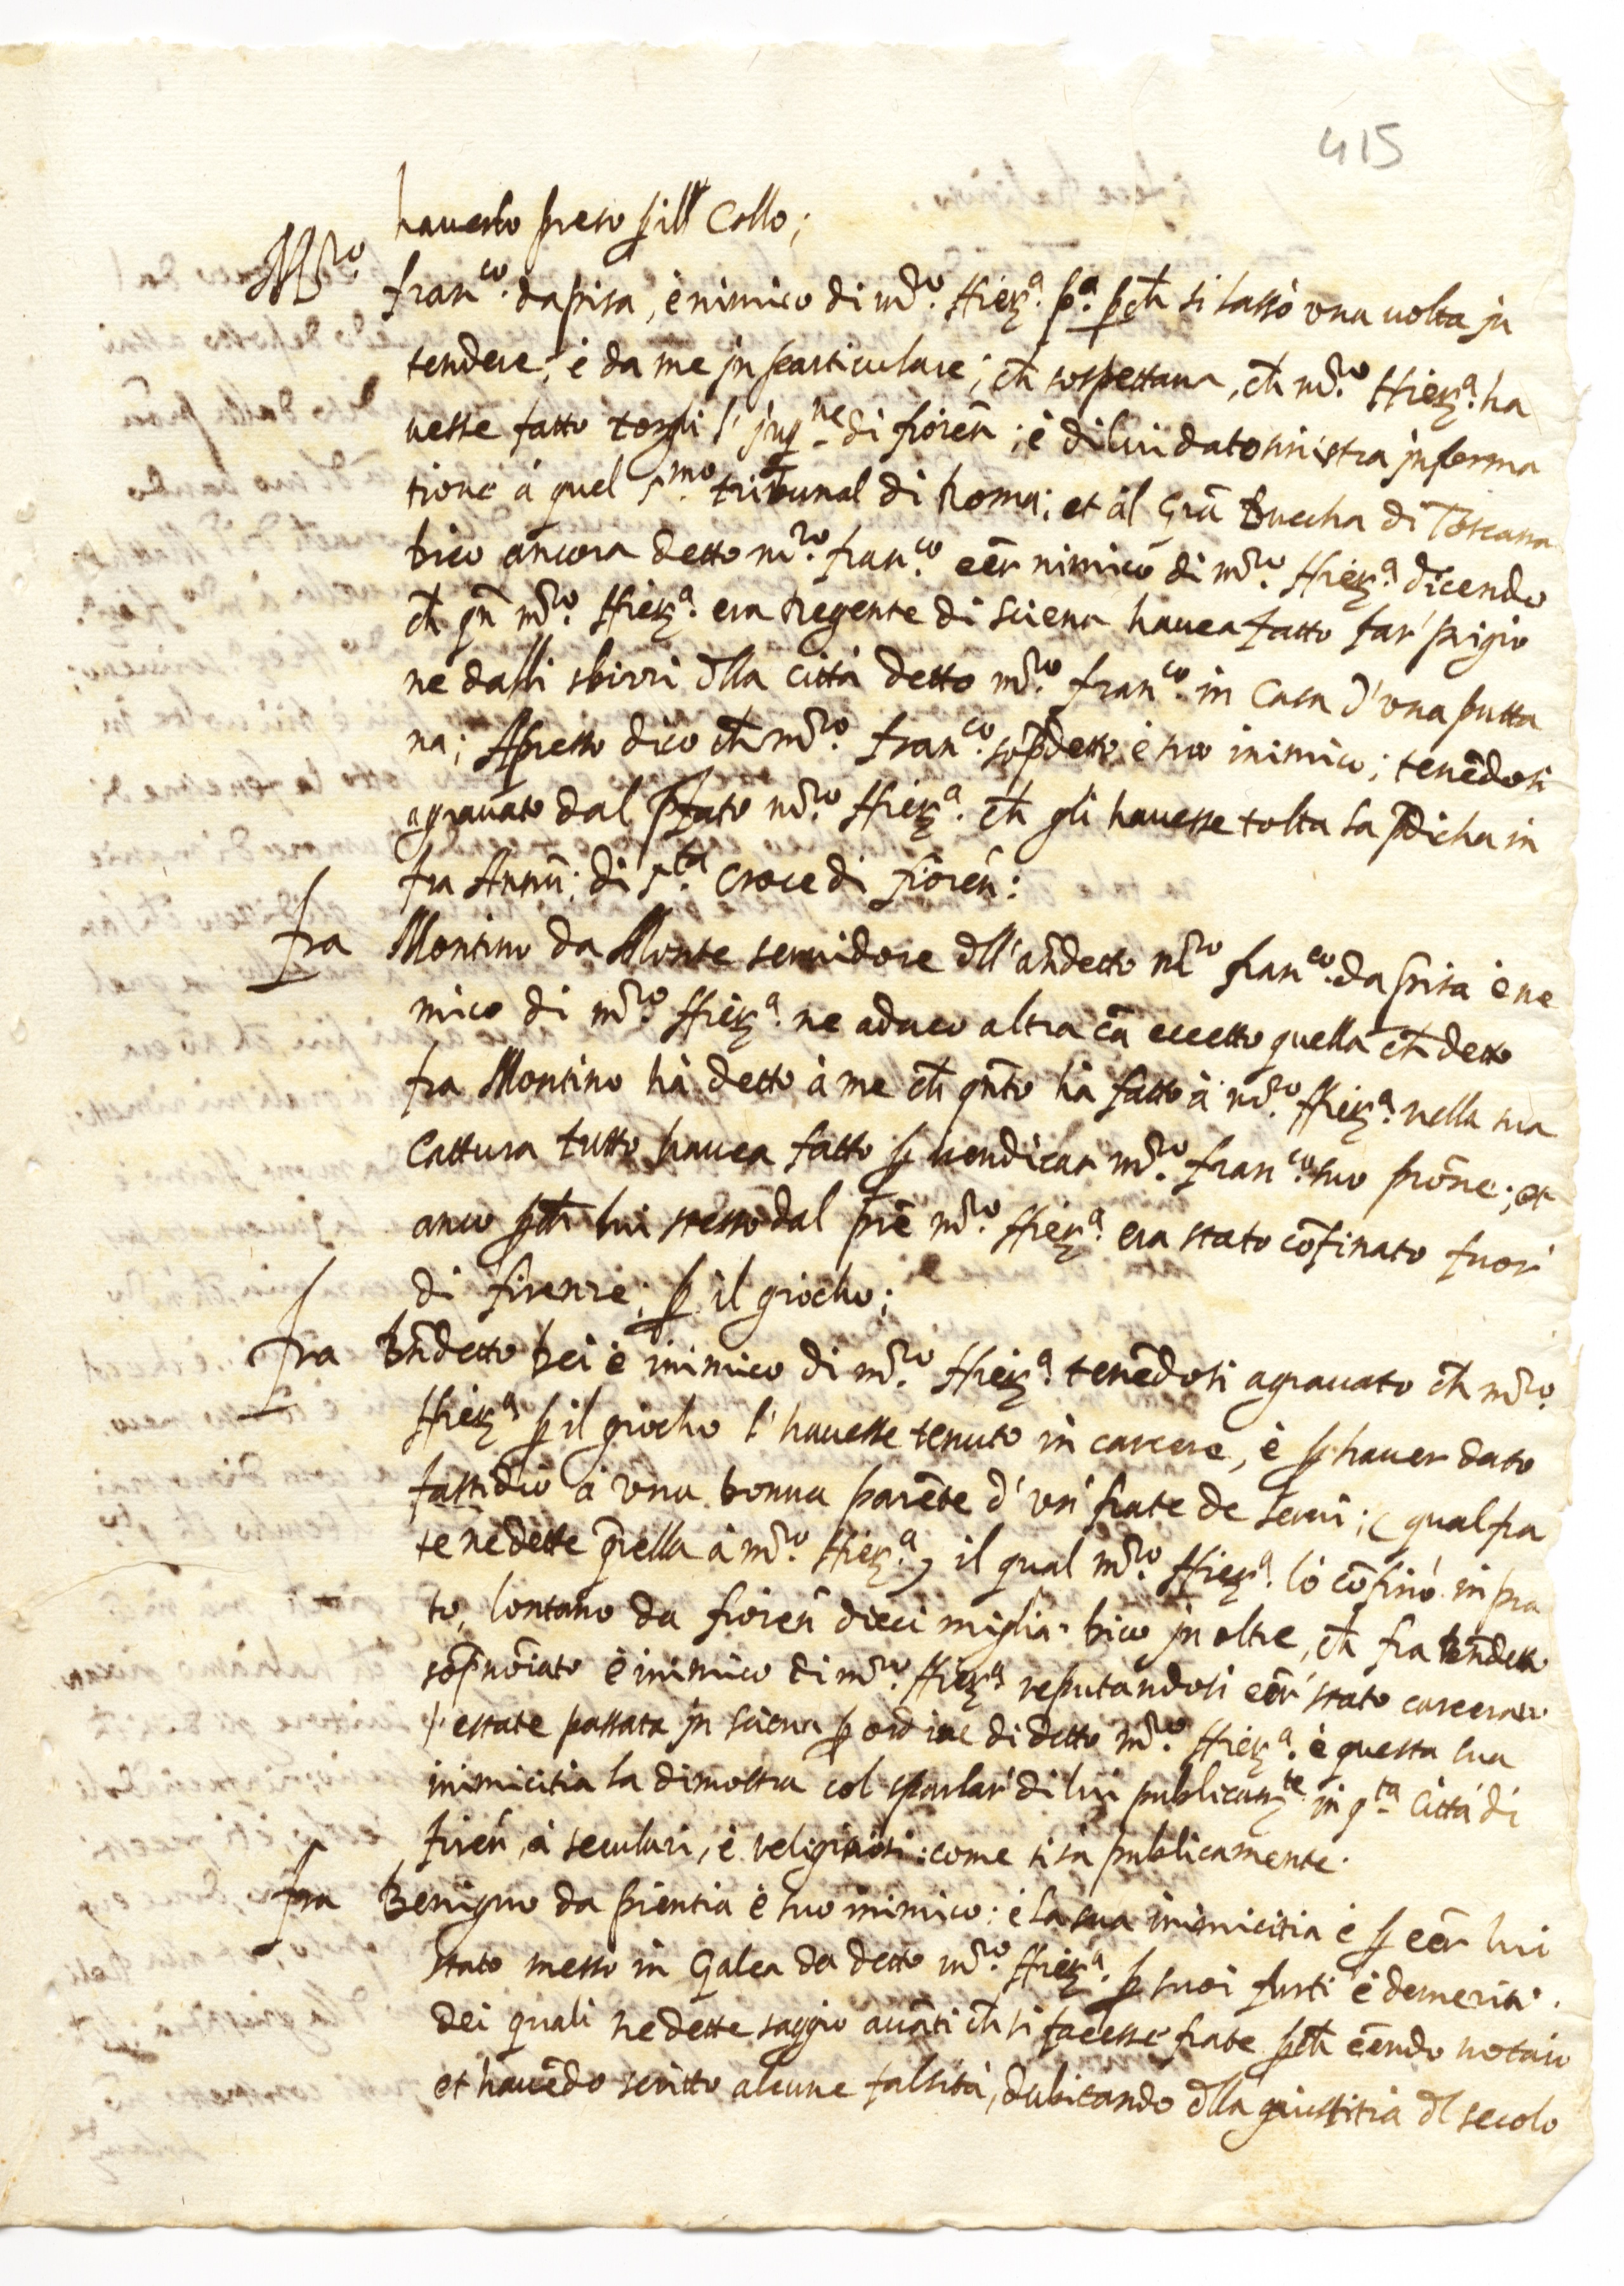 415
hauerlo preso p il Collo;
Mro. fran.co da pisa, è nimico di mro. Hier.a pa. pch si lassò una uolta in
tendere; è da me in particulare; ch sospettaua, ch mro. Hier.a ha
uesse fatto torgli l' inq.ne di fiorēn; è di lui dato sinistra informa
tione à quel s.mo tribunal di Roma; et al Grā Duccha di Toscana
Dico ancora detto mro. fran.co eēr nimico di mro. Hier.a dicendo
ch qn mro. Hier.a era Regente di Sciena hauea fatto far' prigio
ne dalli sbirri dlla città detto mro. fran.co in Casa d' una putta
na; Apresso dico ch mro. fran.co sopdetto è suo inimico; tenēdosi
agrauato dal pfato mro. Hier.a ch gli hauesse tolta la pdicha in
fra Annū: di s.ta Croce di fiorēn:
fra Montino da Monte seruidore dll' andetto mro fran.co da pisa è ne
mico di mro. Hier.a ne aduco altra cā eccetto quella ch detto
fra Montino hà detto à me ch qnto hà fatto à mro. Hier.a nella sua
Cattura tutto hauea fatto p uendicar mro. fran.co suo prōne; et
anco pch lui stesso dal prē mro. Hier.a era stato cōfinato fuor'
di firenze; p il giocho;
fra Bndetto bei è inimico di mro. Hier.a tenēdosi agrauato ch mro.
Hier.a p il giocho l' hauesse tenuto in carcere, è p hauer dato
fastidio à una donna parēte d' un' frate de serui; (qual fra
te ne dette qrella à mro. Hier.a) il qual mro. Hier.a lò cōfinò in pra
to, lontano da fiorēn dieci miglia. Dico in oltre, ch fra bēndetto
sōpnōiato è inimico di mro. Hier.a reputandosi eēr' stato carcerato
l' estate passata in sciena p ordine di detto mro. Hier.a è questa sua
inimicitia la dimostra col sparlar' di lui publicam.te in q.ta Città di
firēn, à seculari, è religiosi: come si sa publicamente.
fra Benigno da pientia è suo inimico: è la sua inimicitia è p eēr lui
stato messo in Galea da detto mro. Hier.a p suoi furti è demeriti.
dei quali ne dette saggio auāti ch si facesse frate pch eēndo notaio
et hauēdo scritto alcune falsità, dubitando dlla giustitia dl secolo